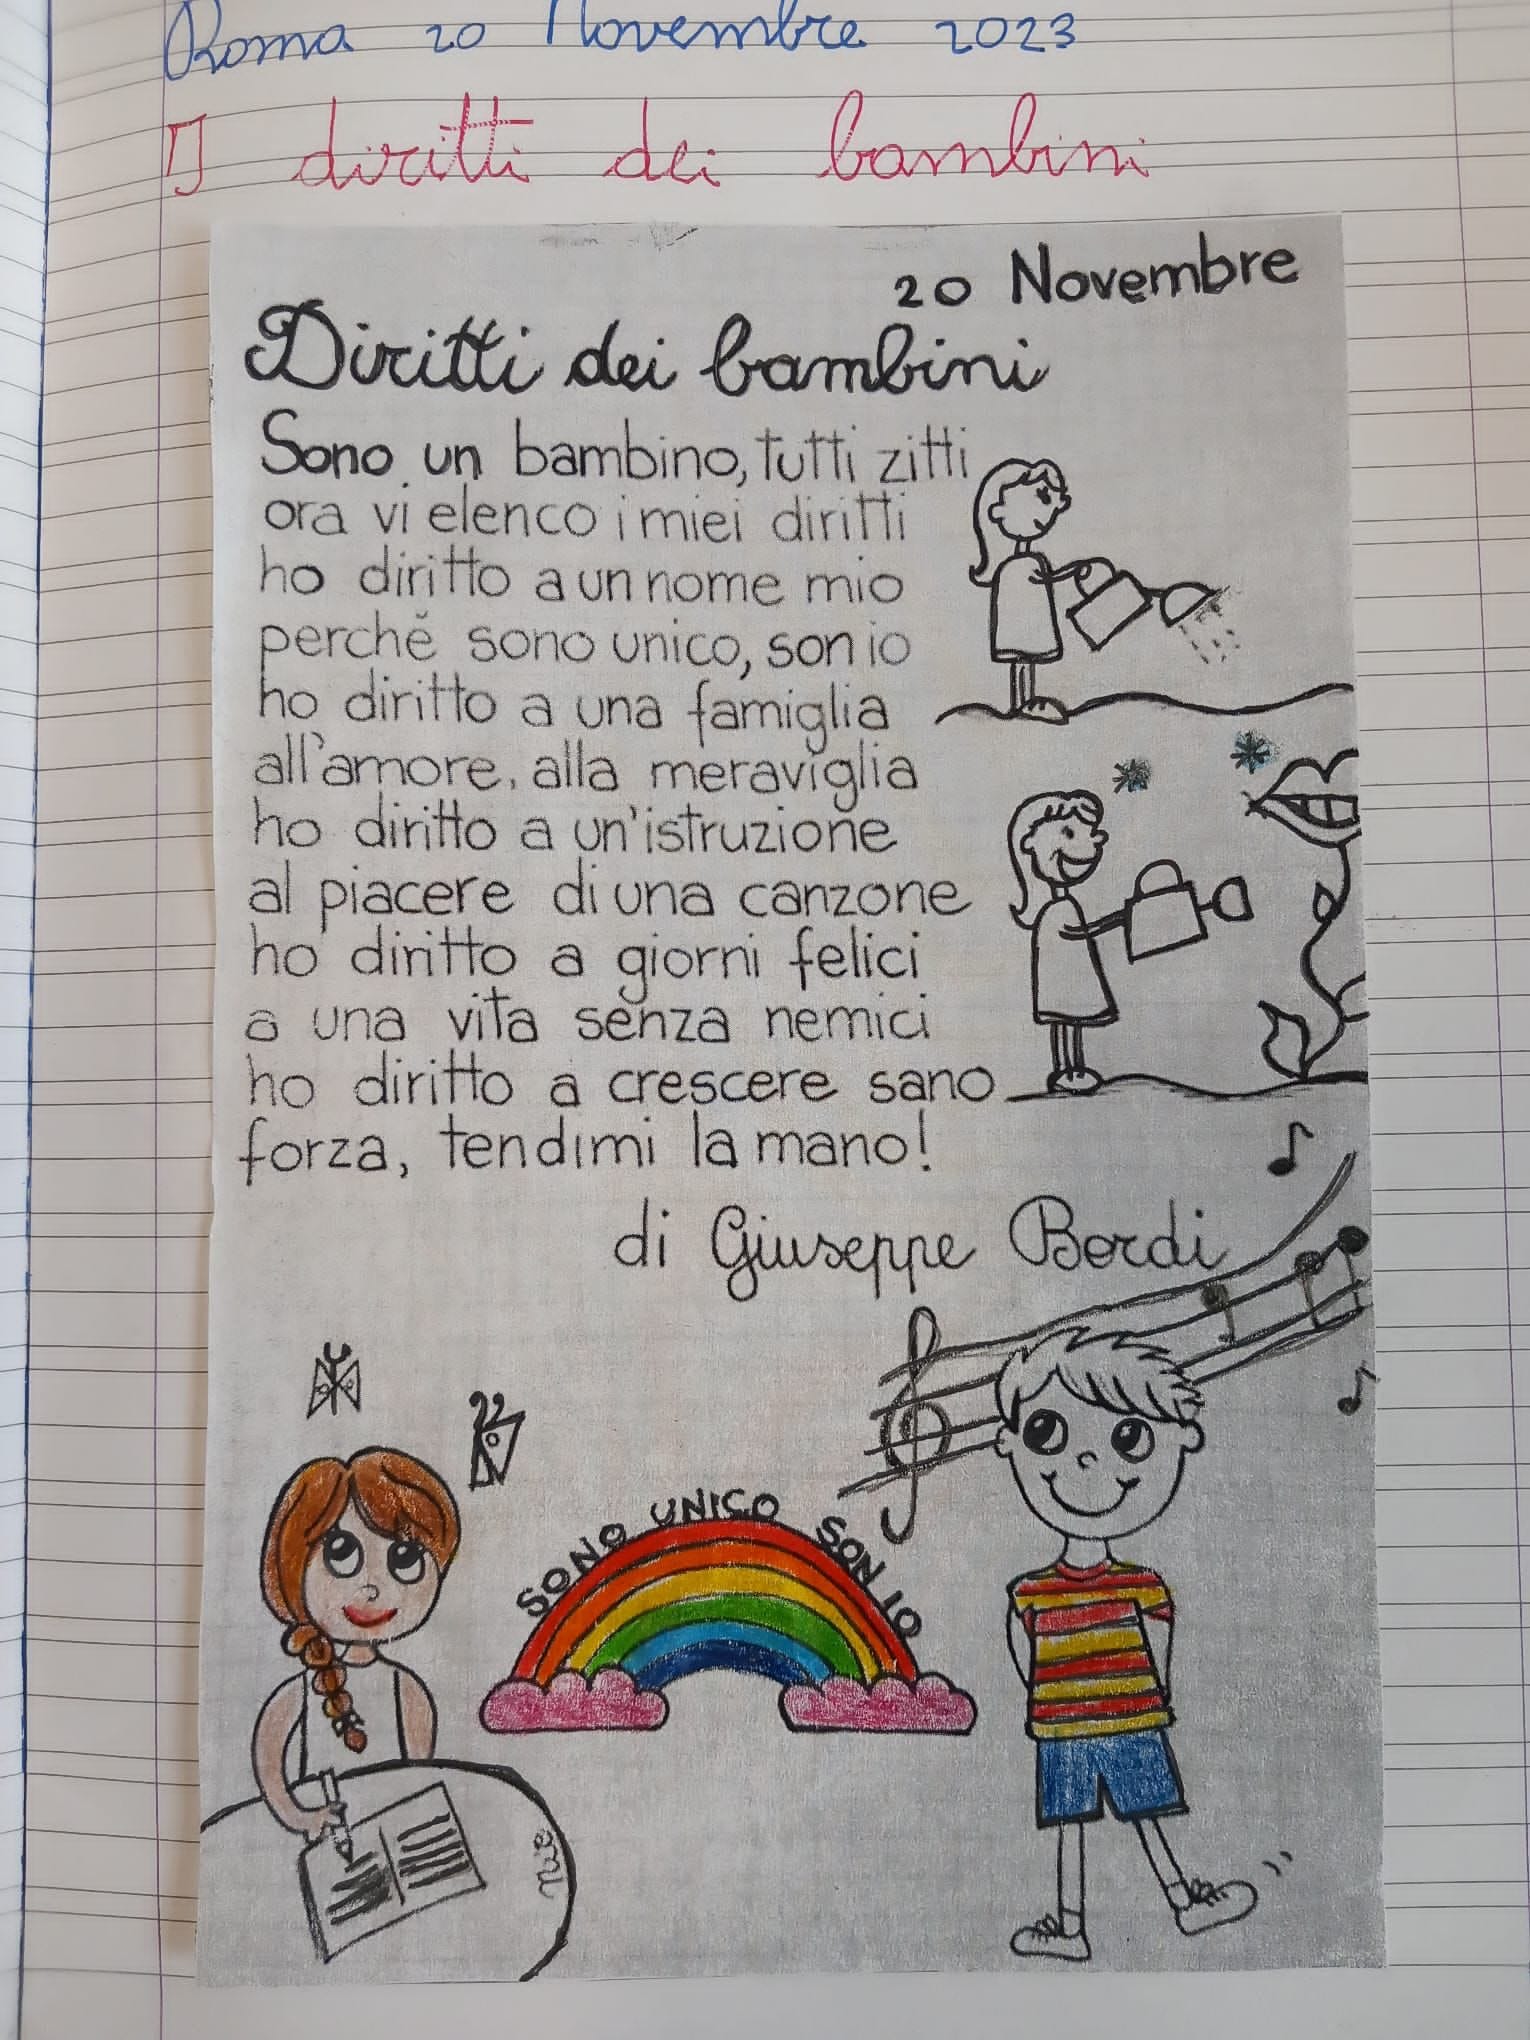 Roma 20 Novembre 2023
I diritti dei bambini
20 Novembre
Diritti dei bambini
Sono un bambino, tutti zitti
ora vi elenco i miei diritti
ho diritto a un nome mio
perchè sono unico, son io
ho diritto a una famiglia
all'amore, alla meraviglia
ho diritto a un'istruzione
al piacere di una canzone
ho diritto a giorni felici
a una vita senza nemici
ho diritto a crescere sano
forza, tendimi la mano!
di Giuseppe Bordi
SONO UNICO SON IO